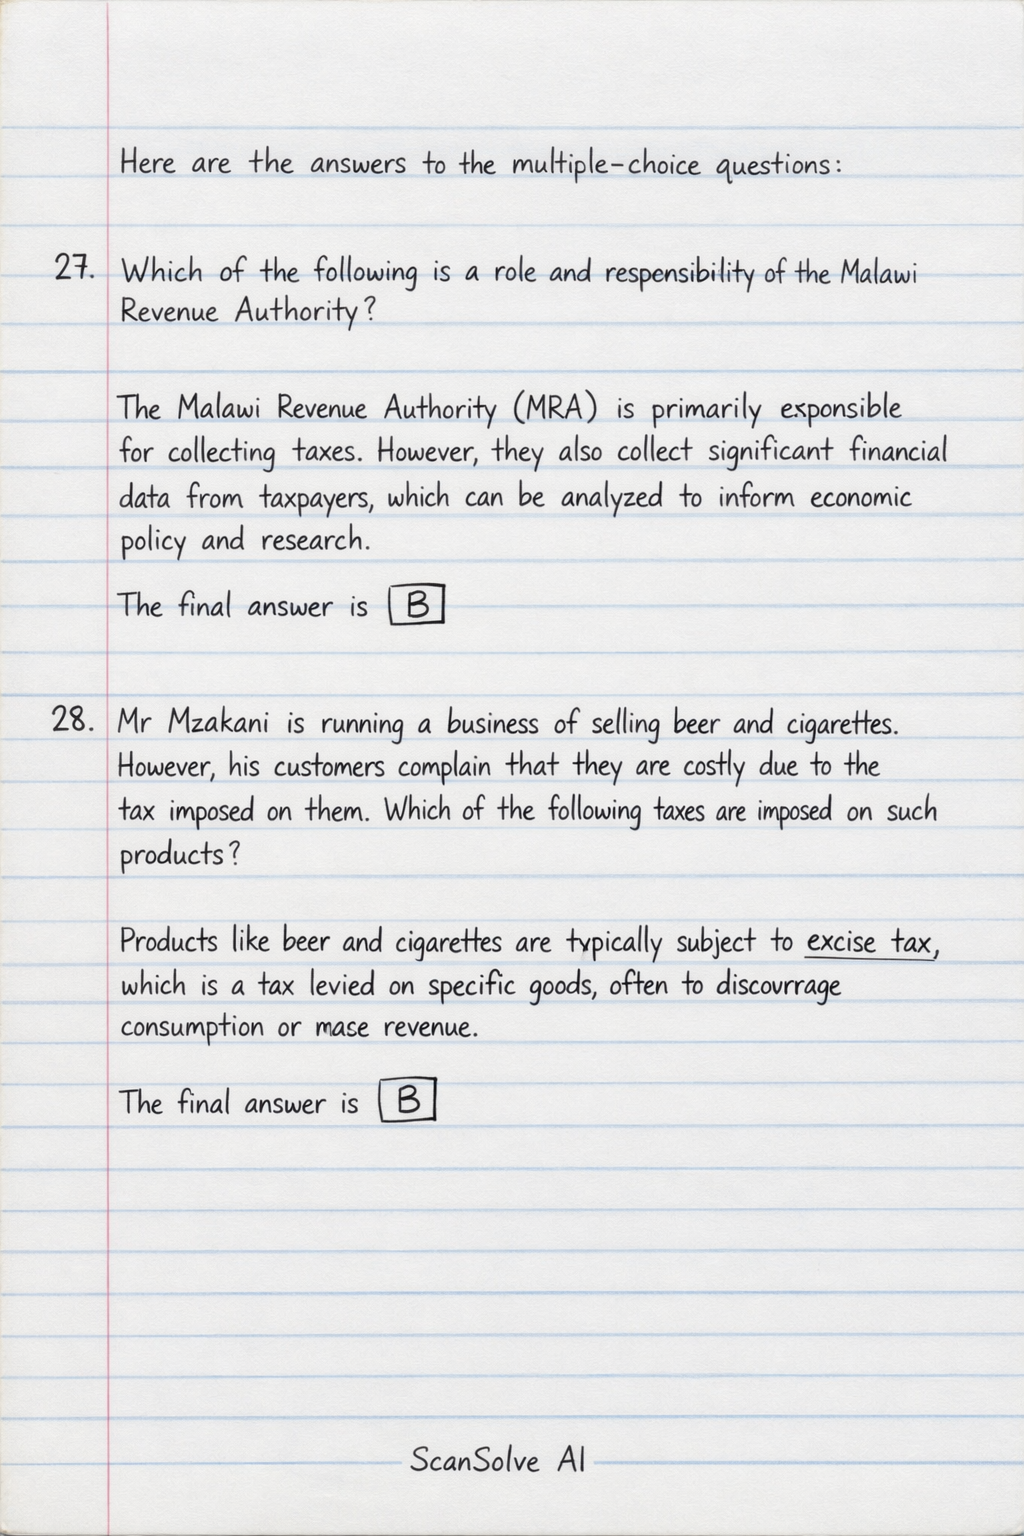 Here are the answers to the multiple-choice questions:
27. Which of the following is a role and respensibility of the Malawi
Revenue Authority?
The Malawi Revenue Authority (MRA) is primarily exponsible
for collecting taxes. However, they also collect significant financial
data from taxpayers, which can be analyzed to inform economic
policy and research.
The final answer is B
28. Mr Mzakani is running a business of selling beer and cigarettes.
However, his customers complain that they are costly due to the
tax imposed on them. Which of the following taxes are imposed on such
products?
Products like beer and cigarettes are typically subject to excise tax,
which is a tax levied on specific goods, often to discovrrage
consumption or mase revenue.
The final answer is B
ScanSolve AI